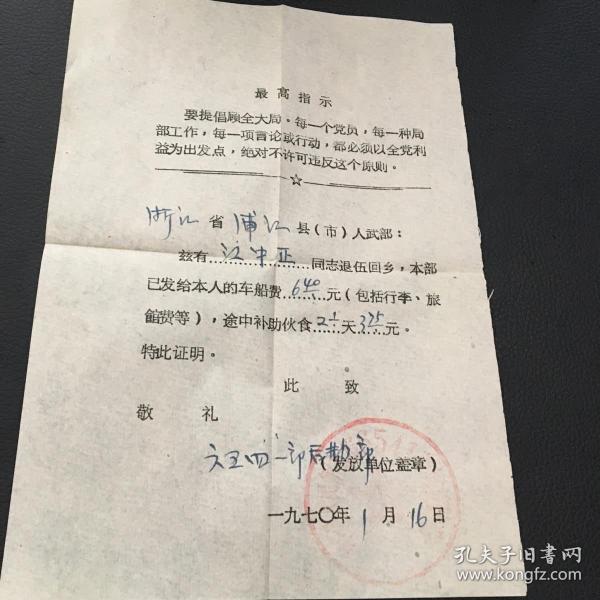 最高指示
要提倡顾全大局。每一个党员，每一种局
部工作，每一项言论或行动，都必须以全党利
益为出发点，绝对不许可违反这个原则。
浙江省浦江县（市）人武部：
兹有江中正同志退伍回乡，本部
已发给本人的车船费640元（包括行李、旅
馆费等），途中补助伙食2½天375元。
特此证明。
此致
敬礼
六五四一部后勤部（发放单位盖章）
一九七〇年1月16日
孔夫子旧书网
www.kongfz.com